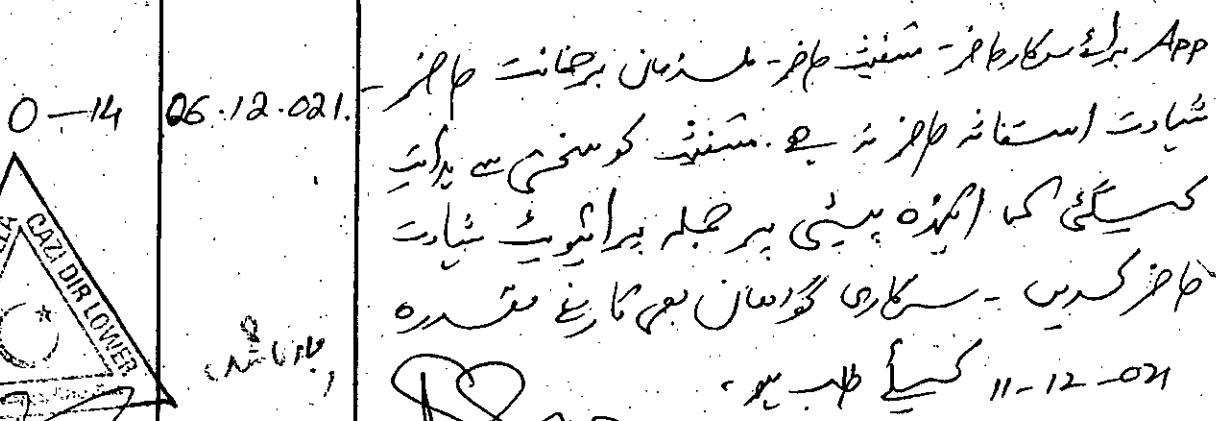 O-14
06.12.021.
App برائے سرکار حاضر۔ مستغیث حاضر۔ ملزمان برضمانت حاضر۔
شہادت استغاثہ حاضر نہ ہے۔ مستغیث کو سختی سے ہدایت
کی گئی کہ آئندہ پیشی پر جملہ پرائیویٹ شہادت
حاضر کریں۔ سرکاری گواہان بھی تاریخ مقررہ
11-12-021 کیلئے طلب ہو۔
CAZI DIR LOWER